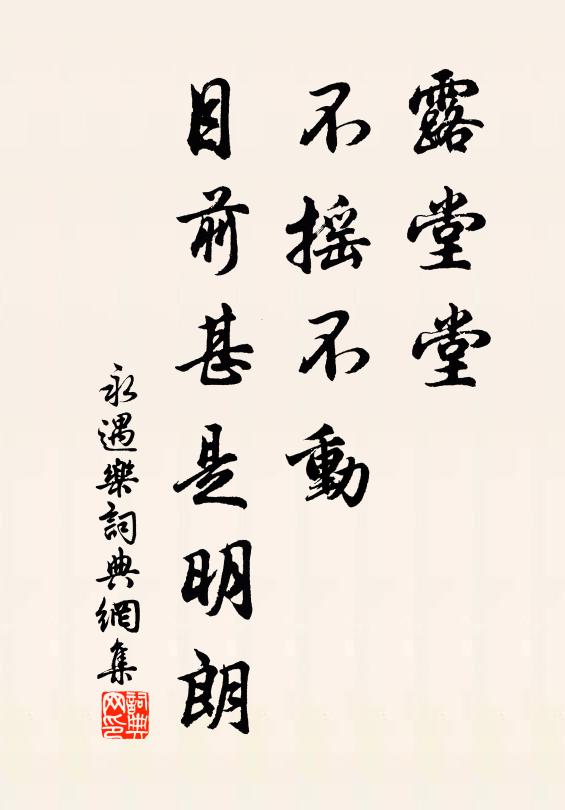 露堂堂
不摇不動
目前甚是明朗
永遇樂詞典網集
詞典
网印